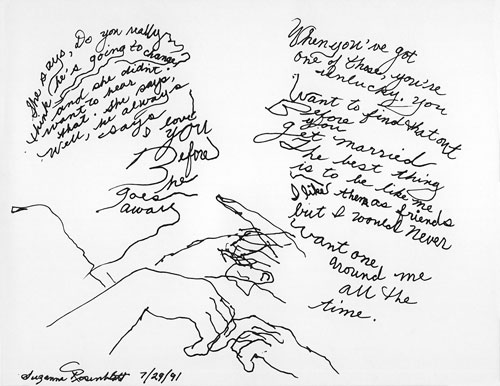 She says, Do you really
think he's going to change,
and she didn't
want to hear
that. she says,
Well, he always
says I love
you
Before
he
goes
away
When you've got
one of those, you're
unlucky. you
Want to find that out
Before you
get married
The best thing
is to be like me
I like them as friends
but I would never
Want one
around me
all the
time.
Suzanna Rosenblatt 7/29/91